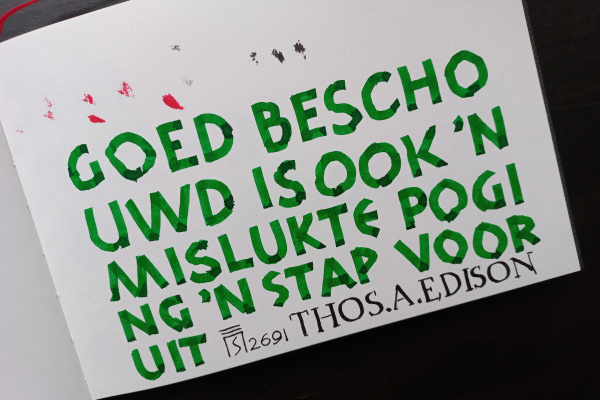 GOED BESCHO
UWD IS OOK 'N
MISLUKTE POGI
NG 'N STAP VOOR
UIT 2691 THOS.A.EDISON